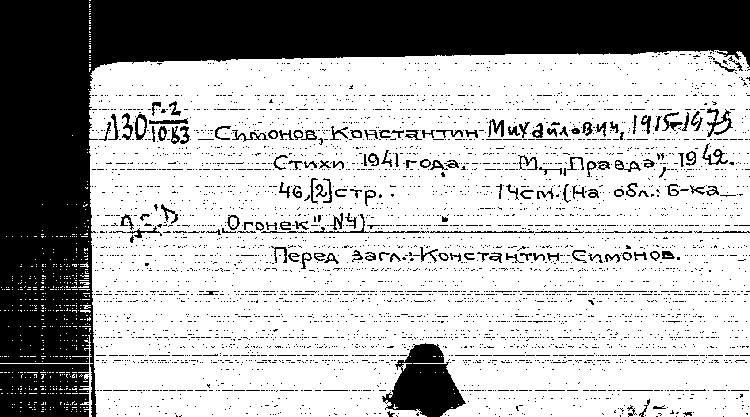 Л30 Г-2
1083
Симонов, Константин Михайлович, 1915-1979
Стихи 1941 года. М., „Правда", 1942.
46,[2] стр. 14см. (На обл.: Б-ка
„Огонек", №4).
Перед загл.: Константин Симонов.